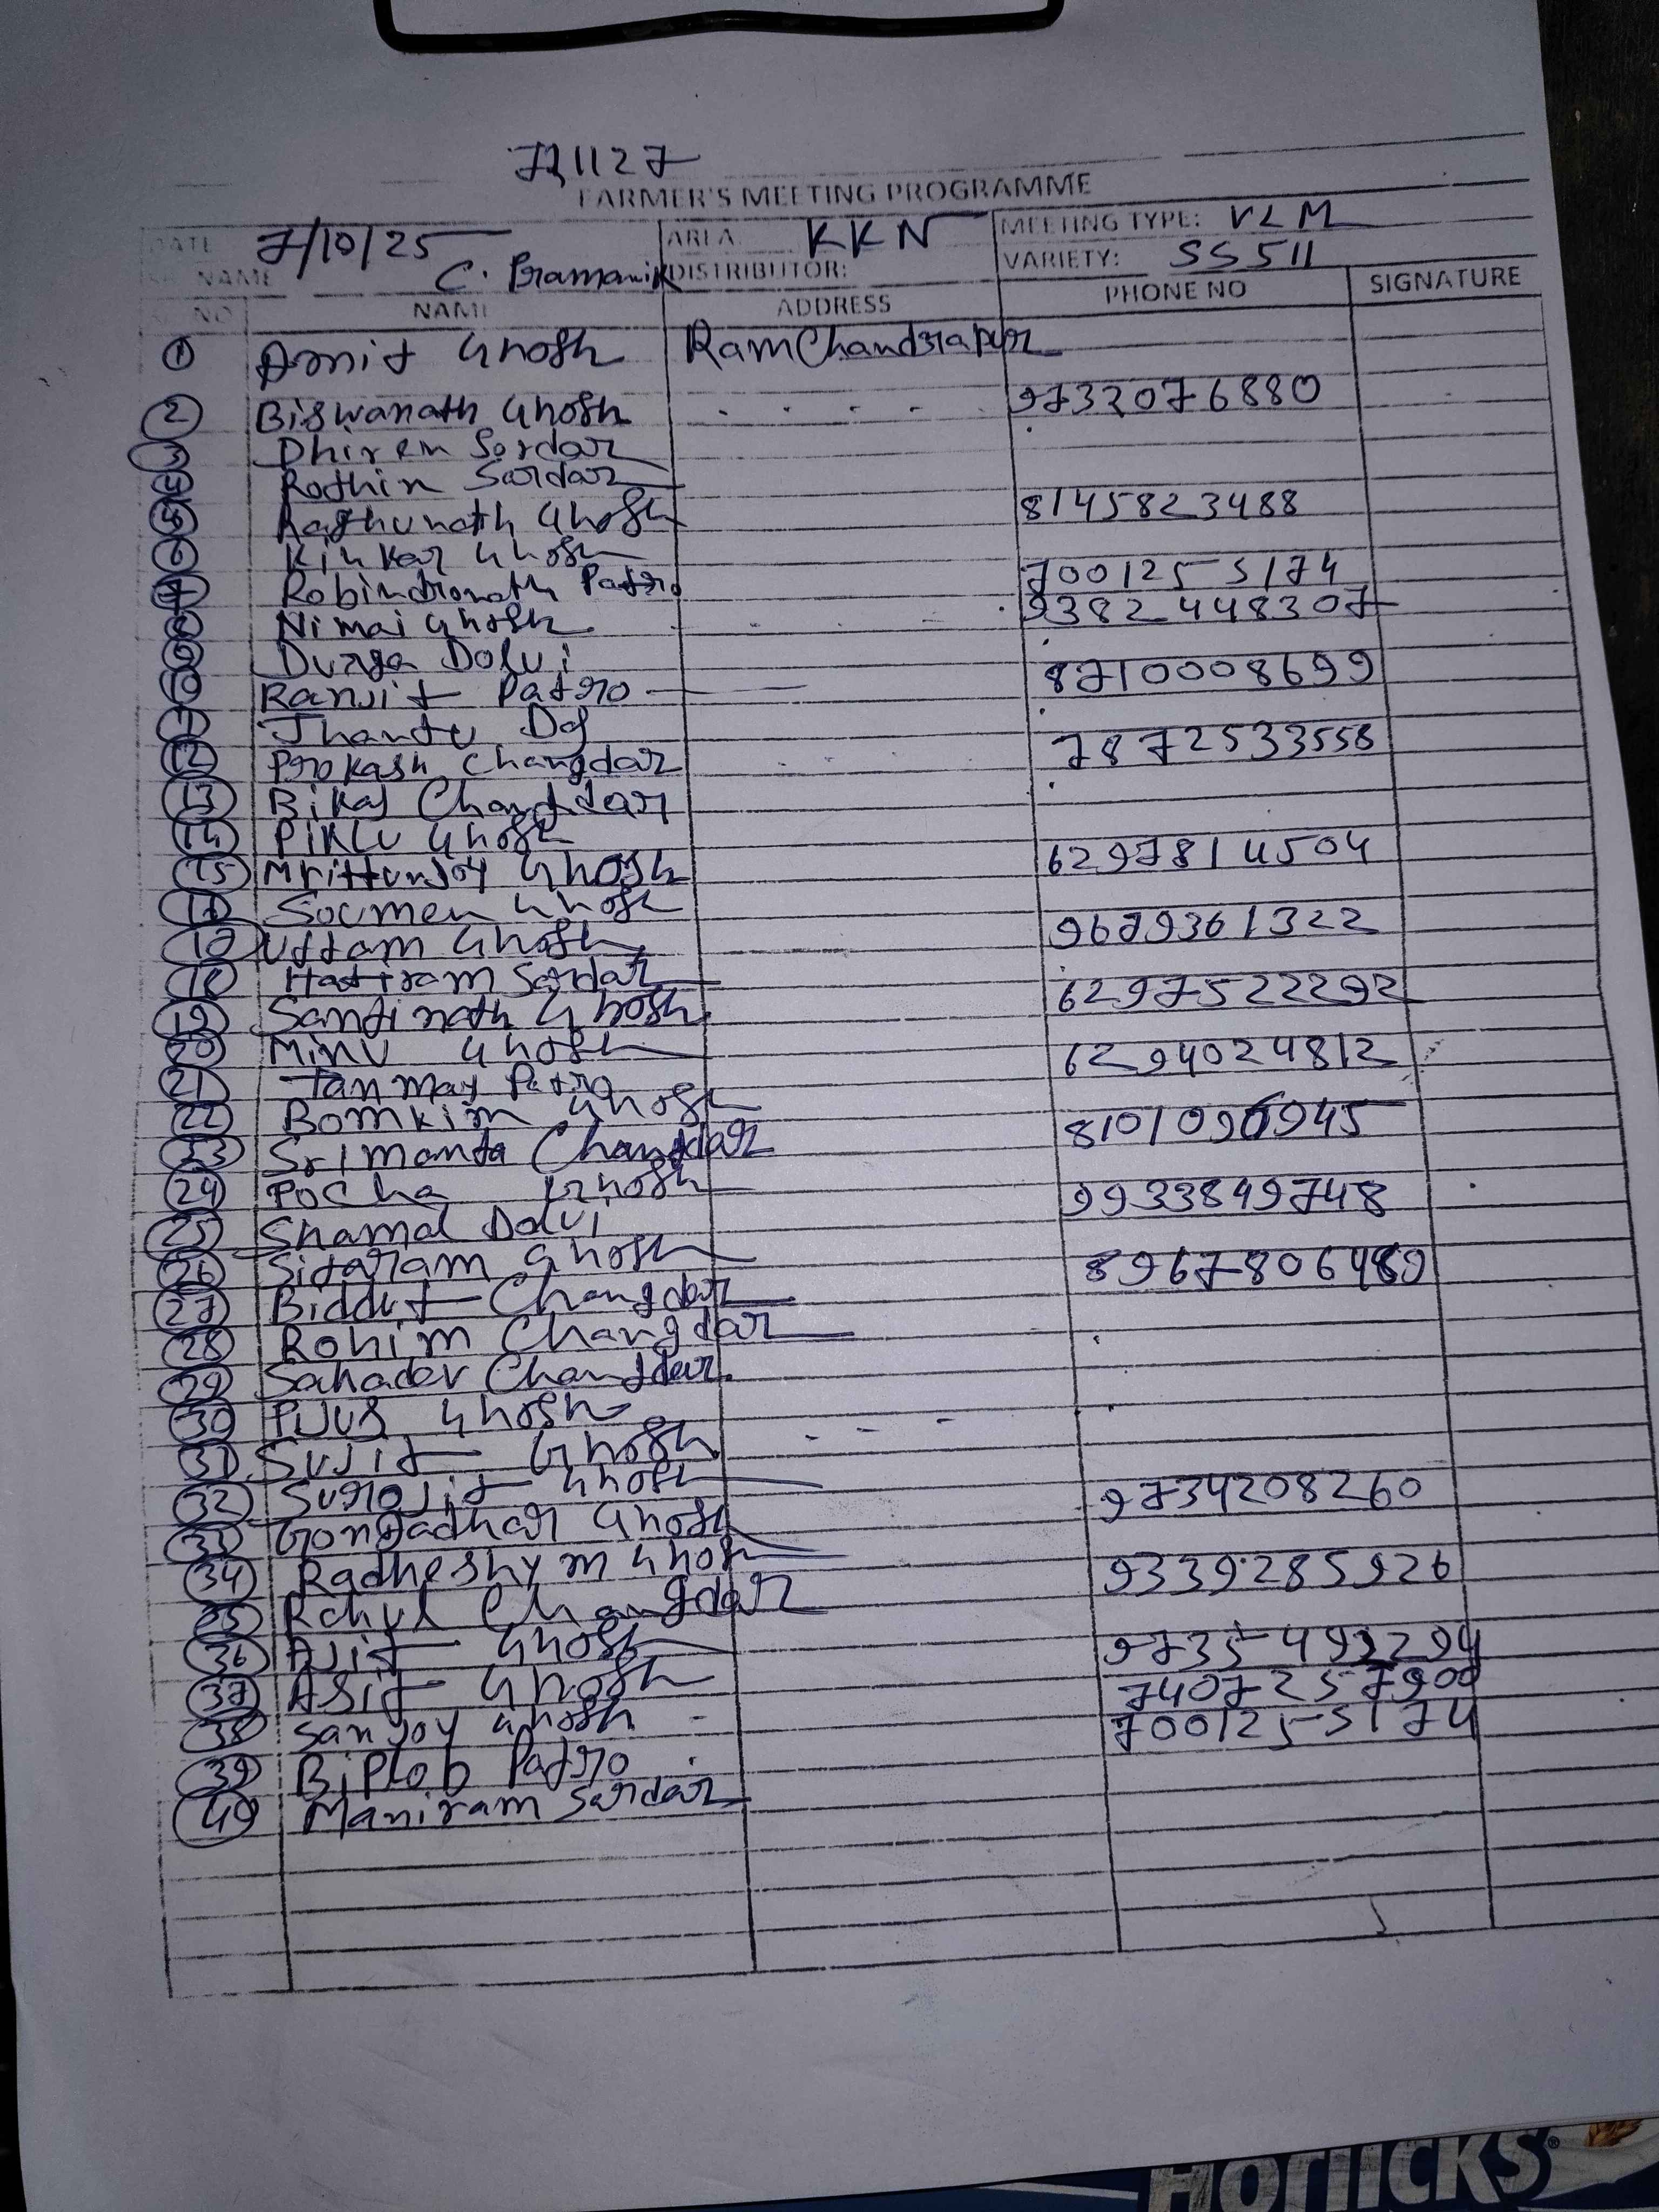 721127
FARMER'S MEETING PROGRAMME
DATE 7/10/25 AREA KKN MEETING TYPE: VLM
NAME C. Pramanik DISTRIBUTOR: VARIETY: SS511
NO NAME ADDRESS PHONE NO SIGNATURE
1 Amit Ghosh RamChandrapur
2 Biswanath Ghosh 9732076880
3 Dhiren Sordar
4 Rothin Sardar
5 Raghunath Ghosh 8145823488
6 Kinkar Ghosh
7 Robindronath Patro 7001255174
8 Nimai Ghosh 9382448307
9 Durga Dolui
10 Ranjit Patro 8710008699
11 Jhantu Das
12 Prokash Changdar 7872533558
13 Bikas Changdar
14 PIKLU Ghosh
15 Mrittunjoy Ghosh 6297814504
Soumen Ghosh
Uttam Ghosh 9679361322
18 Hatiram Sardar
19 Santinath Ghosh 6297522292
20 Minu Ghosh
21 Tanmay Patro 6294024812
22 Bomkim Ghosh
23 Srimanta Changdar 8101096945
24 Pocha Ghosh
25 Shamal Dolui 9933849748
26 Sitaram Ghosh
27 Biddut Changdar 8967806489
28 Rohim Changdar
29 Sahadev Changdar
30 PIJUS Ghosh
31 Sujit Ghosh
32 Surojit Ghosh
33 Gongadhar Ghosh 9734208260
34 Radheshym Ghosh
35 Rahul Changdar 9339285926
36 Ajit Ghosh
37 Asit Ghosh 9735493294
38 Sanjoy Ghosh 7407257900
39 Biplob Patro 7001255174
40 Maniram Sardar
HORLICKS